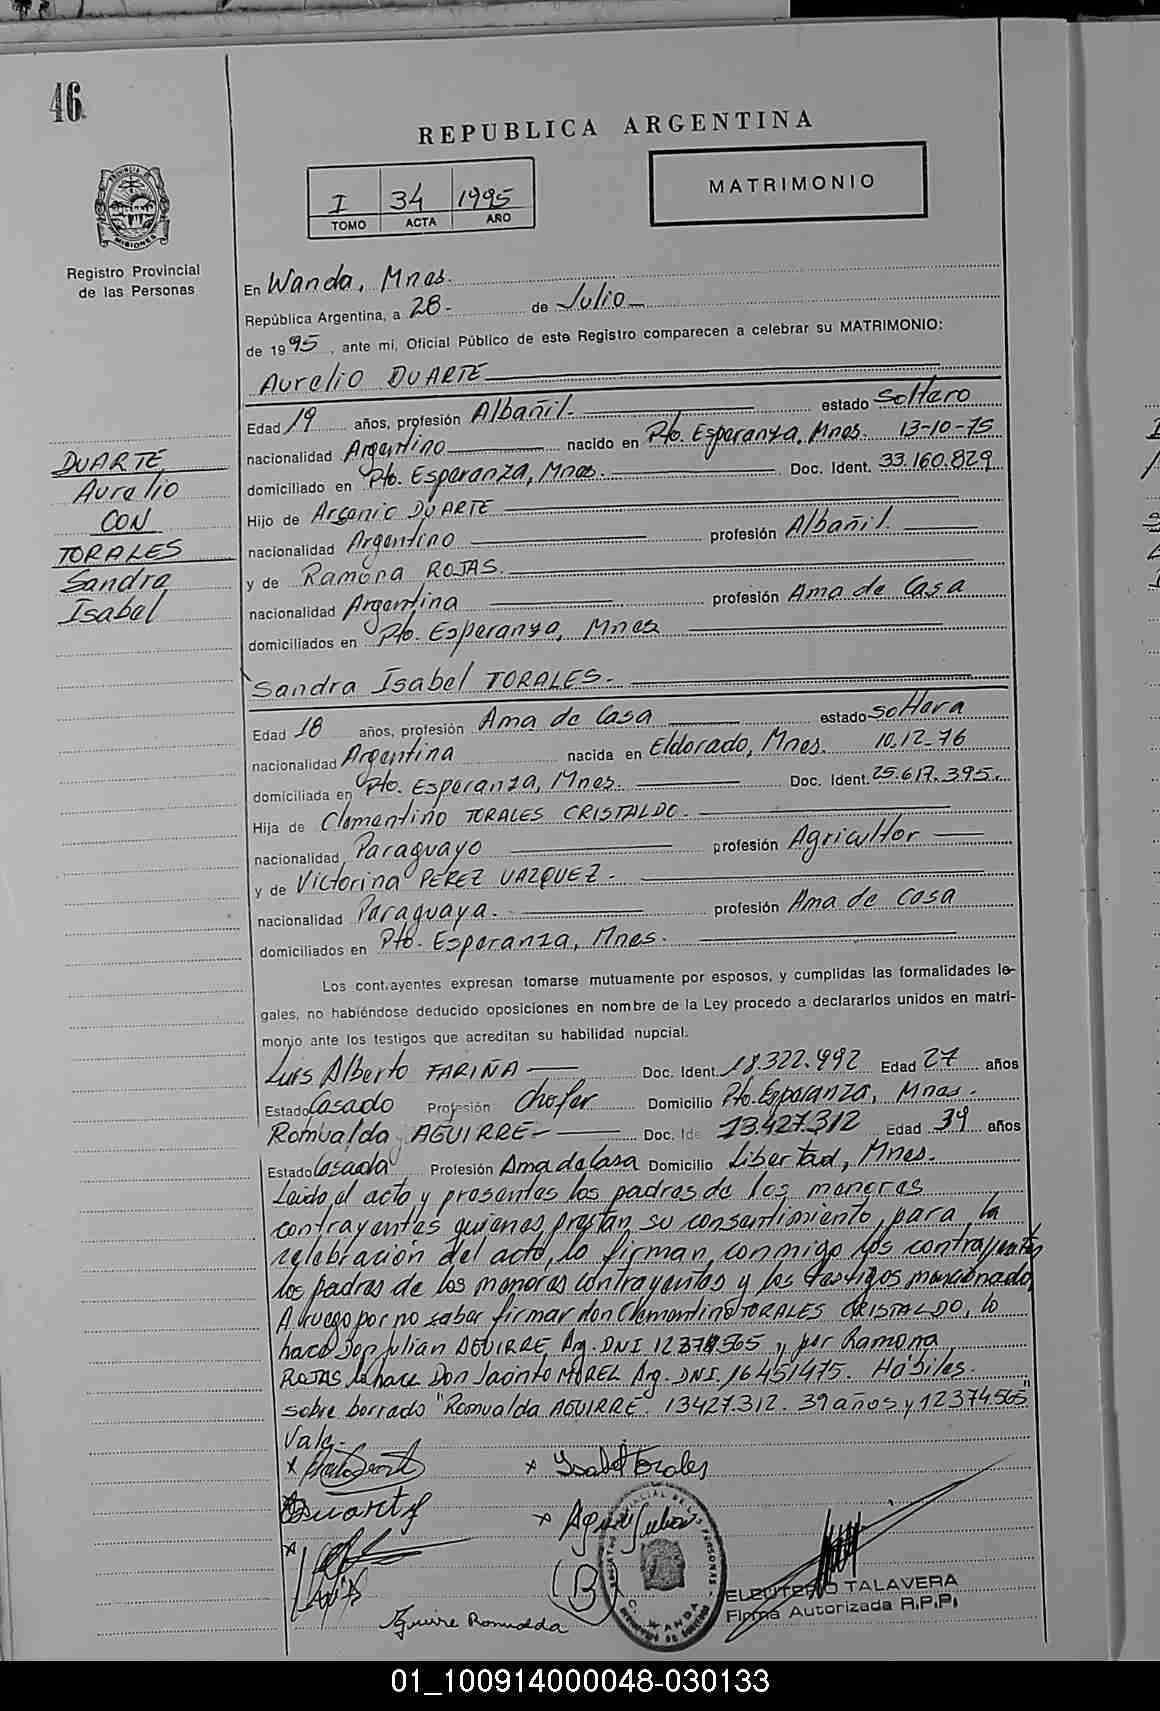 46
REPUBLICA ARGENTINA
I 34 1995
TOMO ACTA AÑO
MATRIMONIO
PROVINCIA DE MISIONES
Registro Provincial
de las Personas
En Wanda, Mnes.
República Argentina, a 28- de Julio
de 1995, ante mi, Oficial Público de este Registro comparecen a celebrar su MATRIMONIO:
Aurelio DUARTE
Edad 19 años, profesión Albañil. estado Soltero
nacionalidad Argentino nacido en Pto. Esperanza, Mnes. 13-10-75
domiciliado en Pto. Esperanza, Mnes. Doc. Ident. 33.160.829
Hijo de Arsenio DUARTE
nacionalidad Argentino profesión Albañil.
y de Ramona ROJAS.
nacionalidad Argentina profesión Ama de Casa
domiciliados en Pto. Esperanza, Mnes
DUARTE
Aurelio
CON
TORALES
Sandra
Isabel
Sandra Isabel TORALES.
Edad 18 años, profesión Ama de Casa estado Soltera
nacionalidad Argentina nacida en Eldorado, Mnes. 10.12-76
domiciliada en Pto. Esperanza, Mnes. Doc. Ident. 25.617.395
Hija de Clementino TORALES CRISTALDO.
nacionalidad Paraguayo profesión Agricultor
y de Victorina PEREZ VAZQUEZ.
nacionalidad Paraguaya. profesión Ama de Casa
domiciliados en Pto. Esperanza, Mnes.
Los contrayentes expresan tomarse mutuamente por esposos, y cumplidas las formalidades le-
gales, no habiéndose deducido oposiciones en nombre de la Ley procedo a declararlos unidos en matri-
monio ante los testigos que acreditan su habilidad nupcial.
Luis Alberto FARIÑA Doc. Ident. 18.322.992 Edad 27 años
Estado Casado Profesión Chofer Domicilio Pto. Esperanza, Mnes.
Romualda AGUIRRE Doc. Ide 13.427.312 Edad 39 años
Estado Casada Profesión Ama de Casa Domicilio Libertad, Mnes.
Leido el acta y presentes los padres de los menores
contrayentes quienes prestan su consentimiento para la
celebracion del acto, lo firman conmigo los contrayentes
los padres de los menores contrayentes y los testigos mencionado
A ruego por no saber firmar don Clementino TORALES CRISTALDO, lo
hace Don Julián AGUIRRE Arg. DNI 12374565 y por Ramona
ROJAS lo hace Don Jacinto MOREL Arg. DNI. 16451475. Hábiles.
sobre borrado "Romualda AGUIRRE. 13427.312. 39 años y 12374565"
Vale.
x Isabel Torales
Duarte
x Aguirre Julian
Aguirre Romualda
ELEUTERIO TALAVERA
Firma Autorizada R.P.P.
01_100914000048-030133